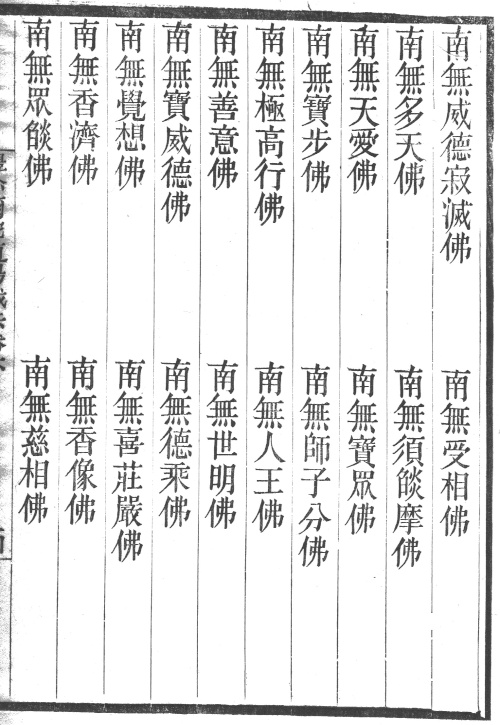 南無威德寂滅佛　南無受相佛
南無多天佛　南無須燄摩佛
南無天愛佛　南無寶眾佛
南無寶步佛　南無師子分佛
南無極高行佛　南無人王佛
南無善意佛　南無世明佛
南無寶威德佛　南無德乘佛
南無覺想佛　南無喜莊嚴佛
南無香濟佛　南無香像佛
南無眾燄佛　南無慈相佛